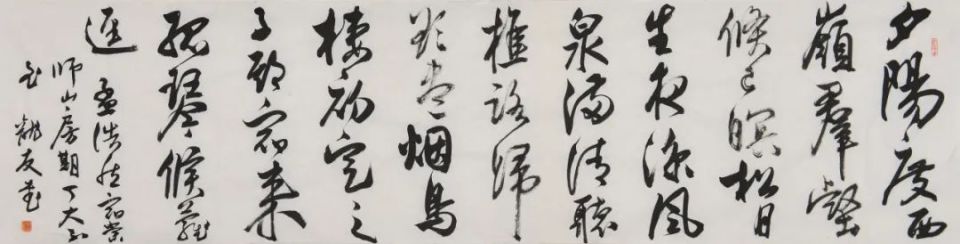 夕陽度西
嶺羣壑
倏已暝松月
生夜涼風
泉滿清聽
樵路歸
欲盡烟鳥
棲初定之
子期宿來
孤琴候蘿
逕 孟浩然宿業
師山房期丁大不
至 友